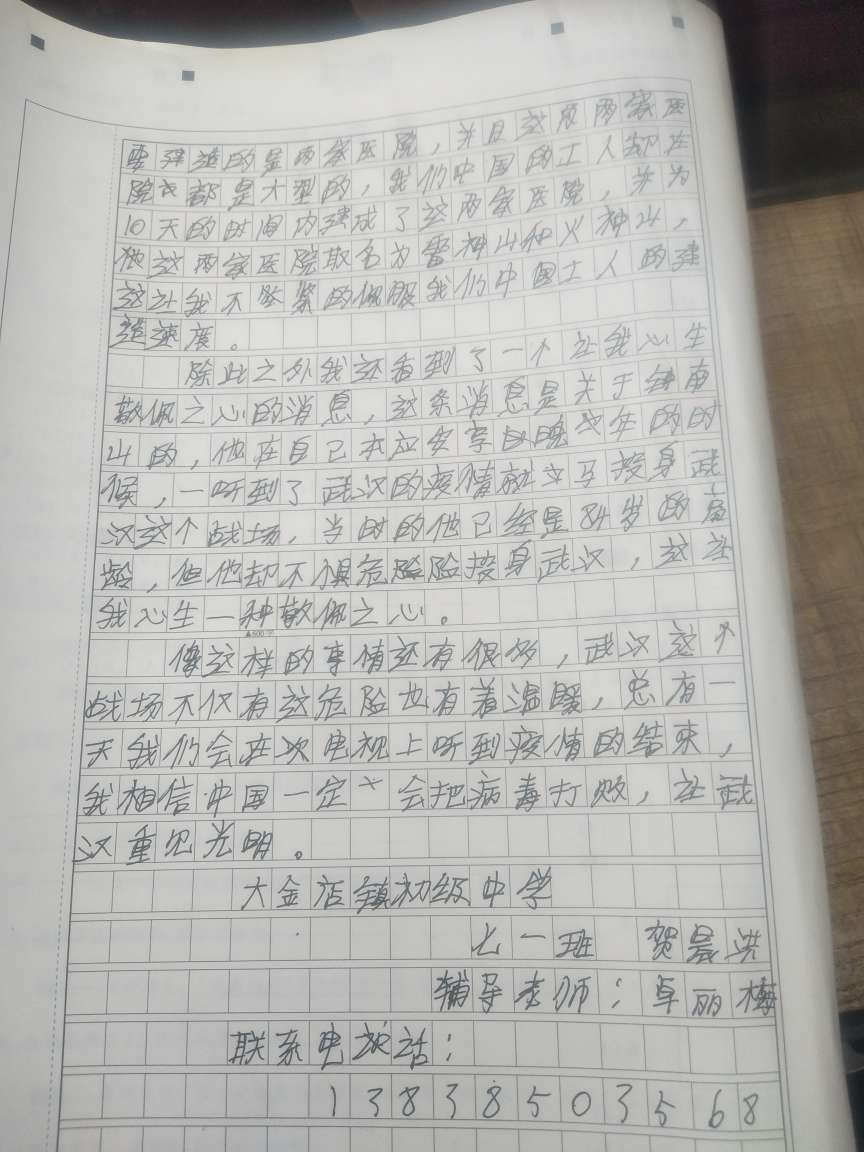 要建造的是两家医院，并且这所两家医
院衣都是大型的，我们中国的工人却在
10天的时间内建成了这两家医院，并为
他这两家医院取名为雷神山和火神山，
这让我不紧的佩服我们中国土人的建
造速度。
除此之外我还看到了一个让我心生
敬佩之心的消息，这条消息是关于钟南
山的，他在自己本应安享晚年的时
候，一听到了武汉的疫情就立马投身武
汉这个战场，当时的他已经是84岁的高
龄，但他却不惧危险险投身武汉，这让
我心生一种敬佩之心。
▲500字
像这样的事情还有很多，武汉这个
战场不仅有这危险也有着温暖，总有一
天我们会在次电视上听到疫情的结束，
我相信中国一定会把病毒打败，让武
汉重见光明。
大金店镇初级中学
七一班 贺晨洪
辅导老师：卓丽梅
联系电话：
13838503568